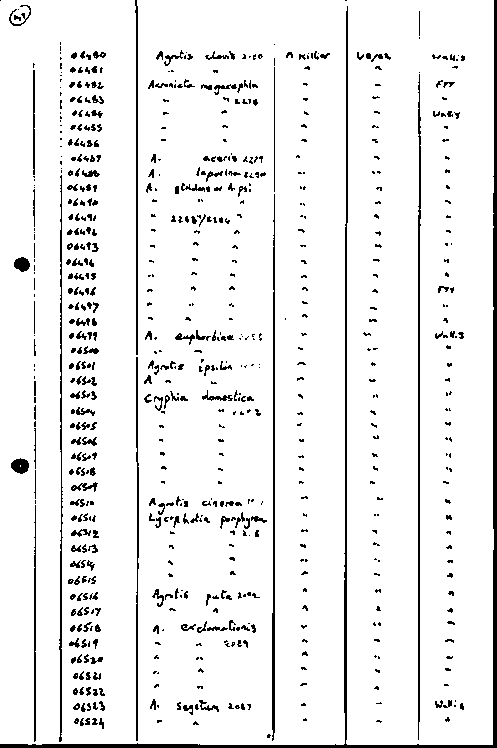 06480 Agrotis clavis A Killiar Wallis
06481 " " " " "
06482 Acronicta megacephla " " FYY
06483 " " 2278 " " "
06484 " " " " Wallis
06485 " " " " "
06486 " " " " "
06487 A. aceris 2279 " " "
06488 A. leporina " " "
06489 A. tridens or A. psi " " "
06490 " " " " "
06491 " 2283/2284 " " " "
06492 " " " " " "
06493 " " " " " "
06494 " " " " " "
06495 " " " " " "
06496 " " " " " FYY
06497 " " " " " "
06498 " " " " " "
06499 A. euphorbiae " " Wallis
06500 " " " " "
06501 Agrotis ipsilon " " "
06502 A " " " " "
06503 Cryphia domestica " " "
06504 " " " " "
06505 " " " " "
06506 " " " " "
06507 " " " " "
06508 " " " " "
06509 " " " " "
06510 Agrotis cinerea " " "
06511 Lycophotia porphyrea " " "
06512 " " " " "
06513 " " " " "
06514 " " " " "
06515 " " " " "
06516 Agrotis puta 2092 " " "
06517 " " " " "
06518 A. exclamationis " " "
06519 " " 2089 " " "
06520 " " " " "
06521 " " " " "
06522 " " " " "
06523 A. segetum 2087 " " Wallis
06524 " " " " "